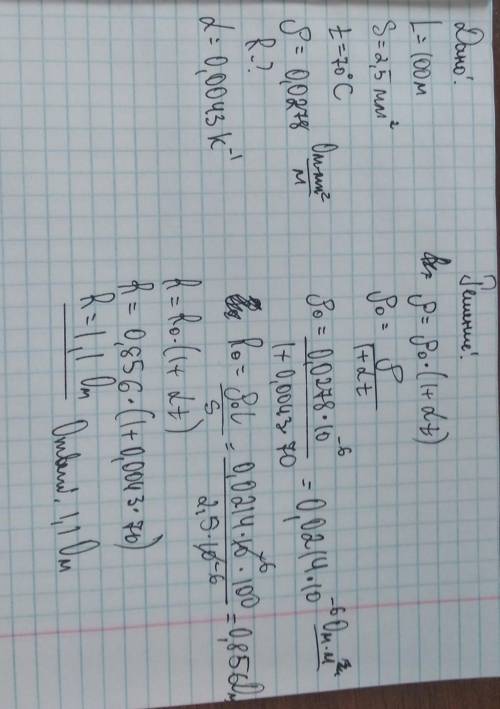 Дано:
L = 100 м
S = 2,5 мм²
t = 70°C
ρ = 0,0278 Ом·мм²/м
R - ?
α = 0,0043 K⁻¹
Решение:
ρ = ρ₀·(1 + αt)
ρ₀ = ρ/(1+αt)
ρ₀ = 0,0278·10⁻⁶/(1+0,0043·70) = 0,0214·10⁻⁶ Ом·м
R₀ = ρ₀L/S = 0,0214·10⁻⁶·100/(2,5·10⁻⁶) = 0,856 Ом
R = R₀·(1 + αt)
R = 0,856·(1+0,0043·70)
R = 1,1 Ом
Ответ: 1,1 Ом